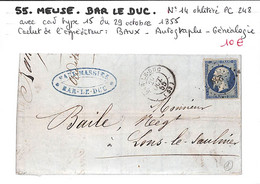 55. MEUSE. BAR LE DUC. N° 14 oblitéré PC 248
avec cad type 15 du 29 octobre 1855
Cachet de l'expéditeur: BAUX - Autographe - Généalogie
10€
BAR-LE-DUC
Monsieur
Baile, Négt
à Lons-le-Saulnier